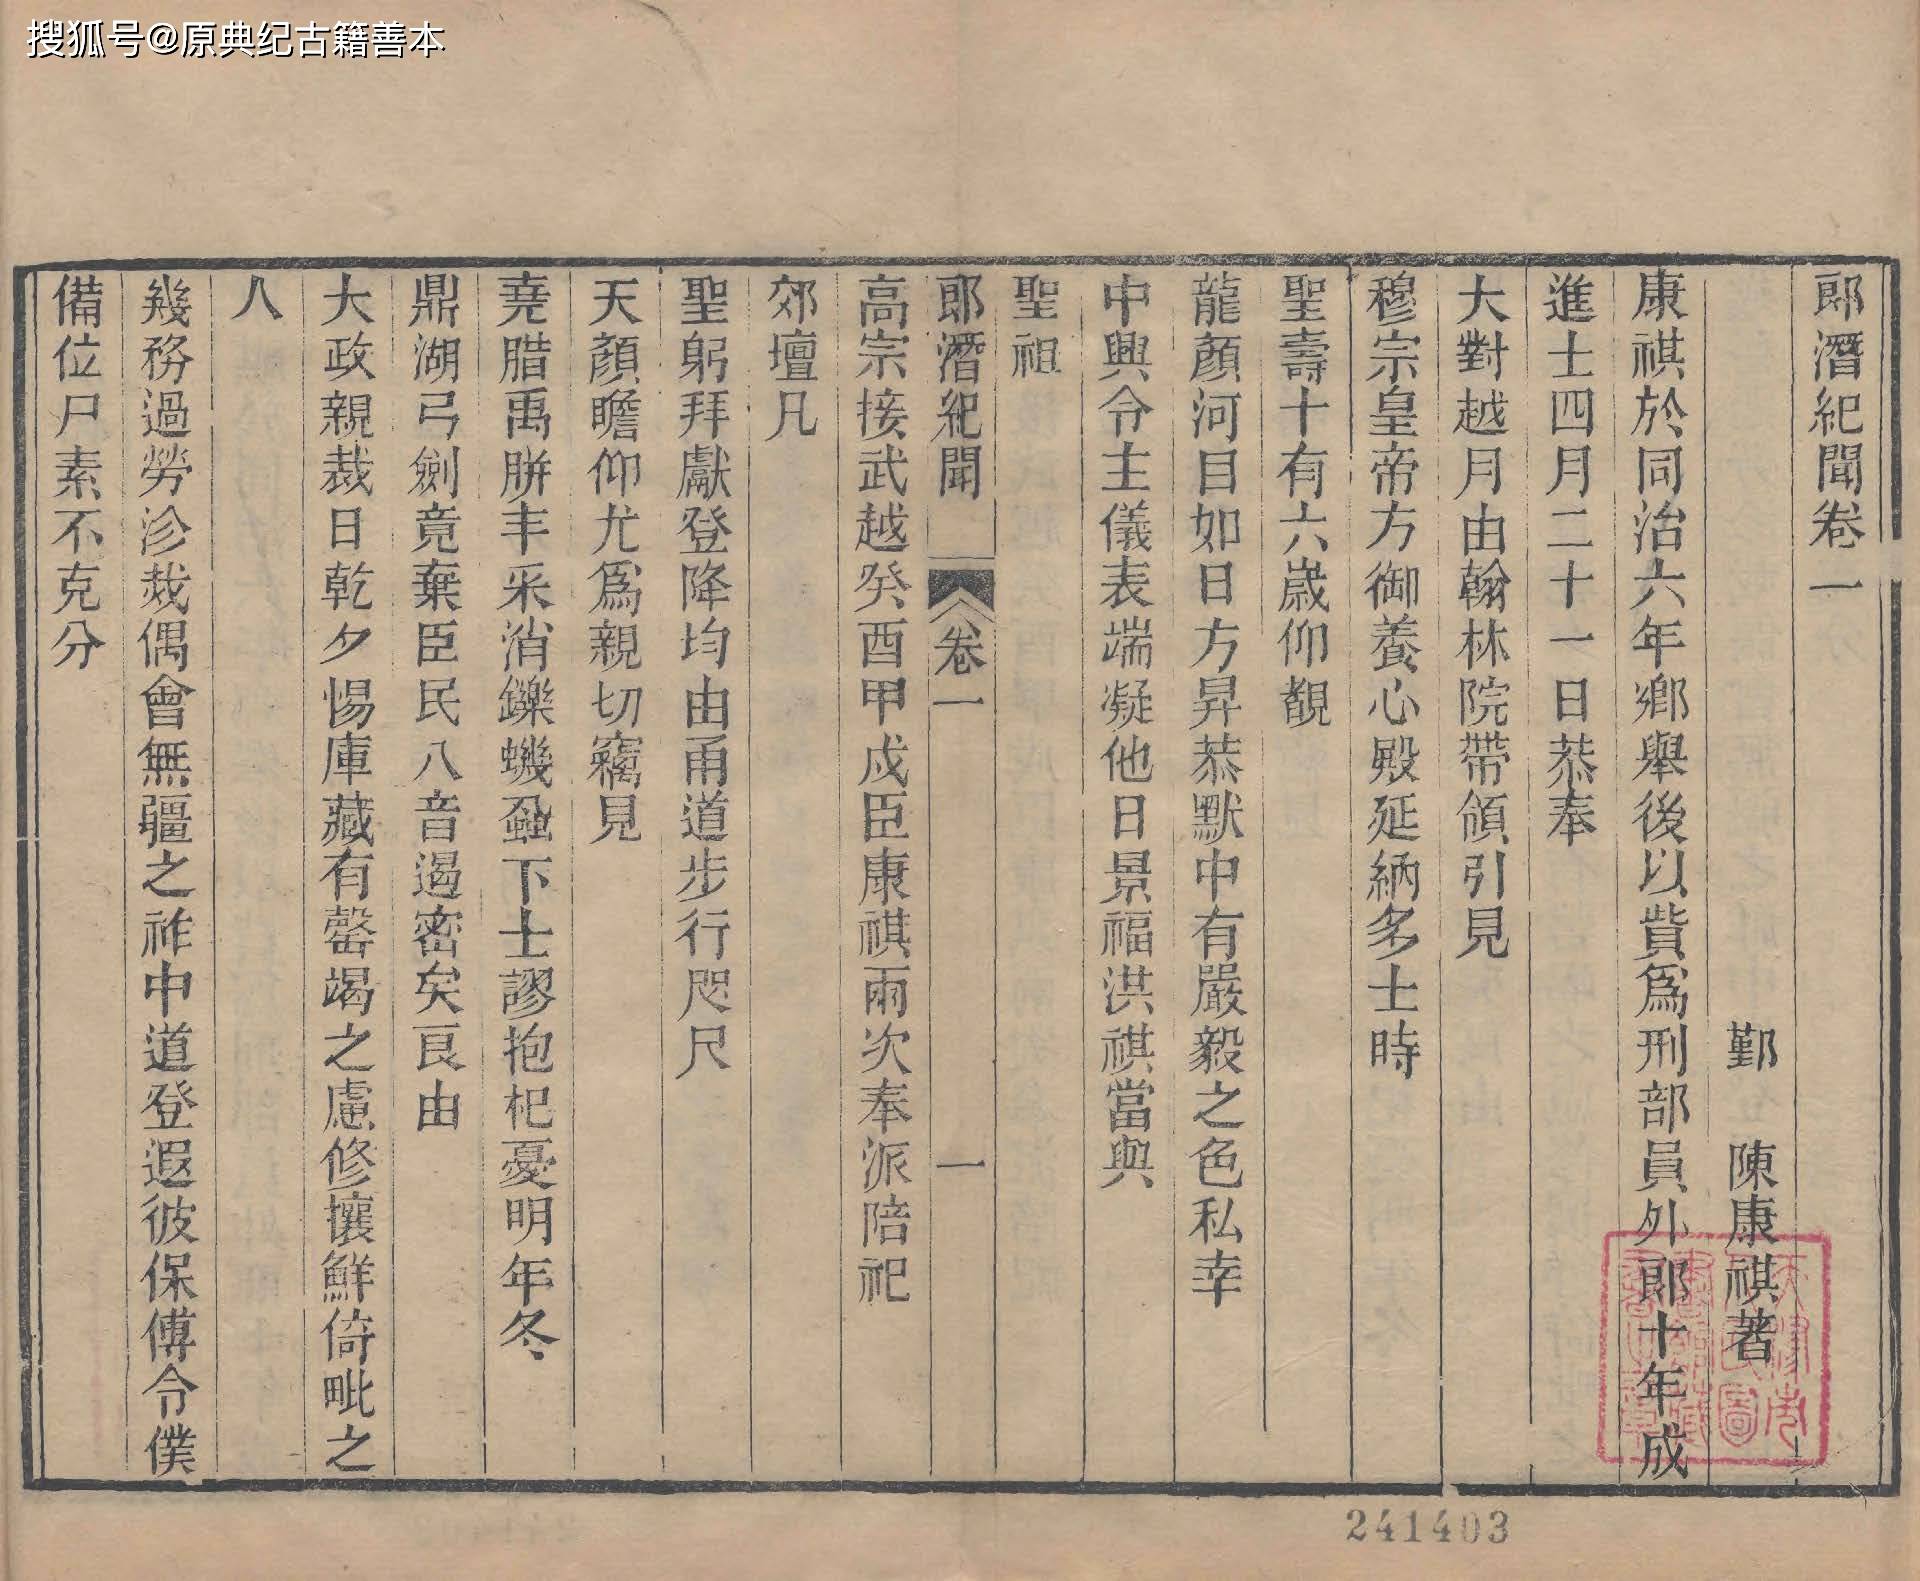 搜狐号@原典纪古籍善本
郎潛紀聞卷一
鄞　陳康祺著
康祺於同治六年鄉舉後以貲爲刑部員外郎十年成
進士四月二十一日恭奉
大對越月由翰林院帶領引見
穆宗皇帝方御養心殿延納多士時
聖壽十有六歲仰覩
龍顏河目如日方昇恭默中有嚴毅之色私幸
中興令主儀表端凝他日景福洪祺當與
聖祖
郎潛紀聞　卷一　一
高宗接武越癸酉甲戌臣康祺兩次奉派陪祀
郊壇凡
聖躬拜獻登降均由甬道步行咫尺
天顏瞻仰尤爲親切竊見
堯腊禹胼丰采消鑠蟣蝨下士謬抱杞憂明年冬
鼎湖弓劍竟棄臣民八音遏密矣良由
大政親裁日乾夕惕庫藏有罄竭之慮修攘鮮倚毗之
人
幾務過勞沴烖偶會無疆之祚中道登遐彼保傅令僕
備位尸素不克分
241403